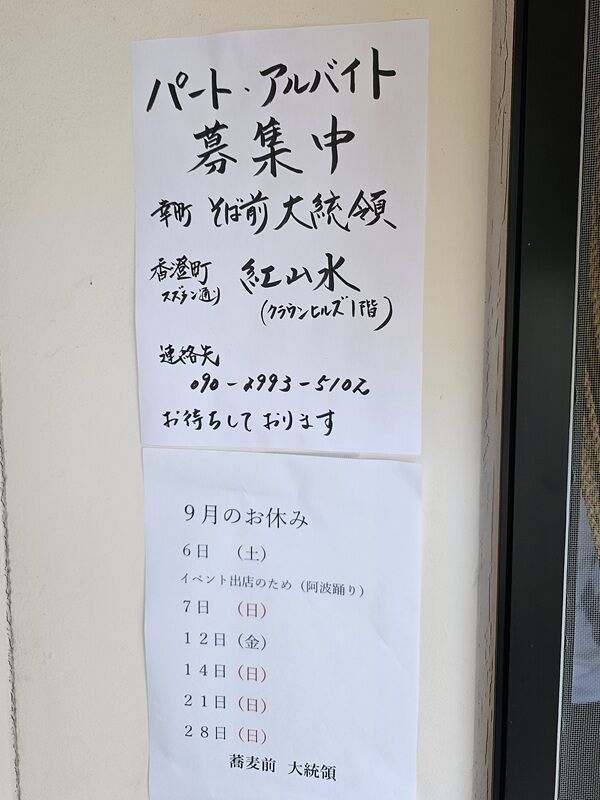 パート・アルバイト
募集中
幸町 そば前 大統領
香澄町 紅山水
スズラン通り (クラウンヒルズ1階)
連絡先
090-2993-5102
お待ちしております
9月のお休み
6日 (土)
イベント出店のため(阿波踊り)
7日 (日)
12日(金)
14日(日)
21日(日)
28日(日)
蕎麦前 大統領